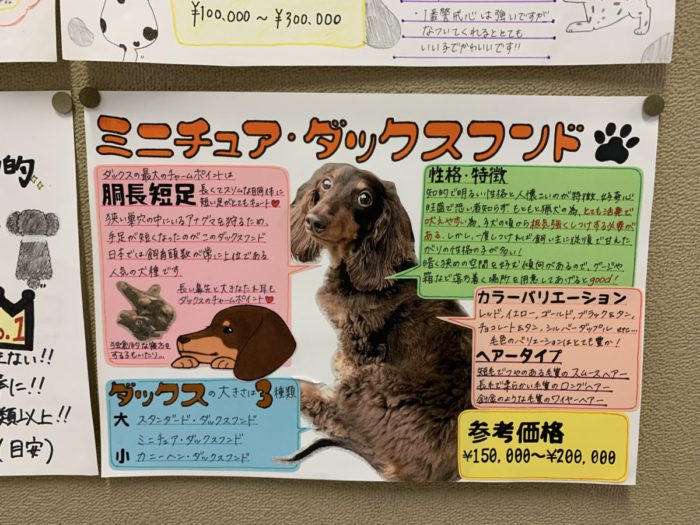 ¥100,000～¥300,000
・1番警戒心は強いですが
なついてくれるととても
いい子でかわいいです!!
的
No.1
ない!!
に!!
類以上!!
(目安)
ミニチュア・ダックスフンド
ダックスの最大のチャームポイントは
胴長短足
長くてスリムな胴体に
短い足がとてもキュート
狭い巣穴の中にいるアナグマを狩るため、
手足が短くなったのがこのダックスフンド
日本では飼育頭数が常に上位である
人気の犬種です。
長い鼻先と大きなたれ耳も
ダックスのチャームポイント
独創的な寝方を
する子もいたり...
ダックスの大きさは3種類
大 スタンダード・ダックスフンド
ミニチュア・ダックスフンド
小 カニーヘン・ダックスフンド
性格・特徴
知的で明るい性格と人懐こいのが特徴。好奇心
旺盛で恐い者知らず。もともと猟犬の為、とても活発で
吠えやすい為、子犬の頃から根気強くしつけする必要が
ある。しかし、一度しつければ飼い主に従順で甘えた
がりの性格の子が多い!
暗く狭めの空間を好む傾向があるので、ゲージや
箱など落ち着く場所を用意してあげるとgood!
カラーバリエーション
レッド、イエロー、ゴールド、ブラック&タン、
チョコレート&タン、シルバーダップル etc...
毛色のバリエーションはとても豊か!
ヘアータイプ
短毛でつやのある毛質のスムースヘアー
長毛で柔らかい毛質のロングヘアー
針金のような毛質のワイヤーヘアー
参考価格
¥150,000～¥200,000